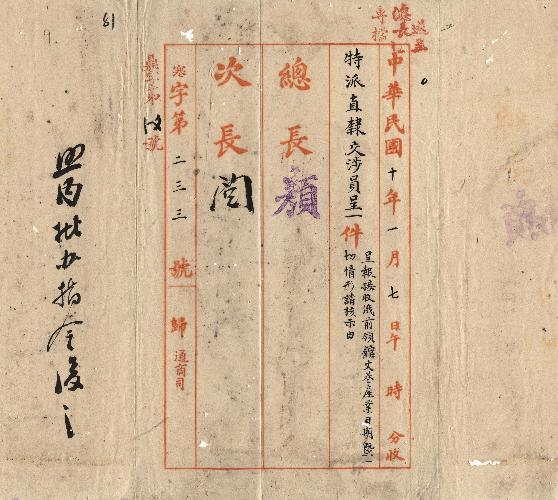 中華民國十年一月七日午 時 分收
特派直隸交涉員呈一件
呈報接收俄前領館文卷產業日期暨一
切情形請核示由
總長顏
次長閱
寒字第二三三號 歸 通商司
照內批办指令復之
81